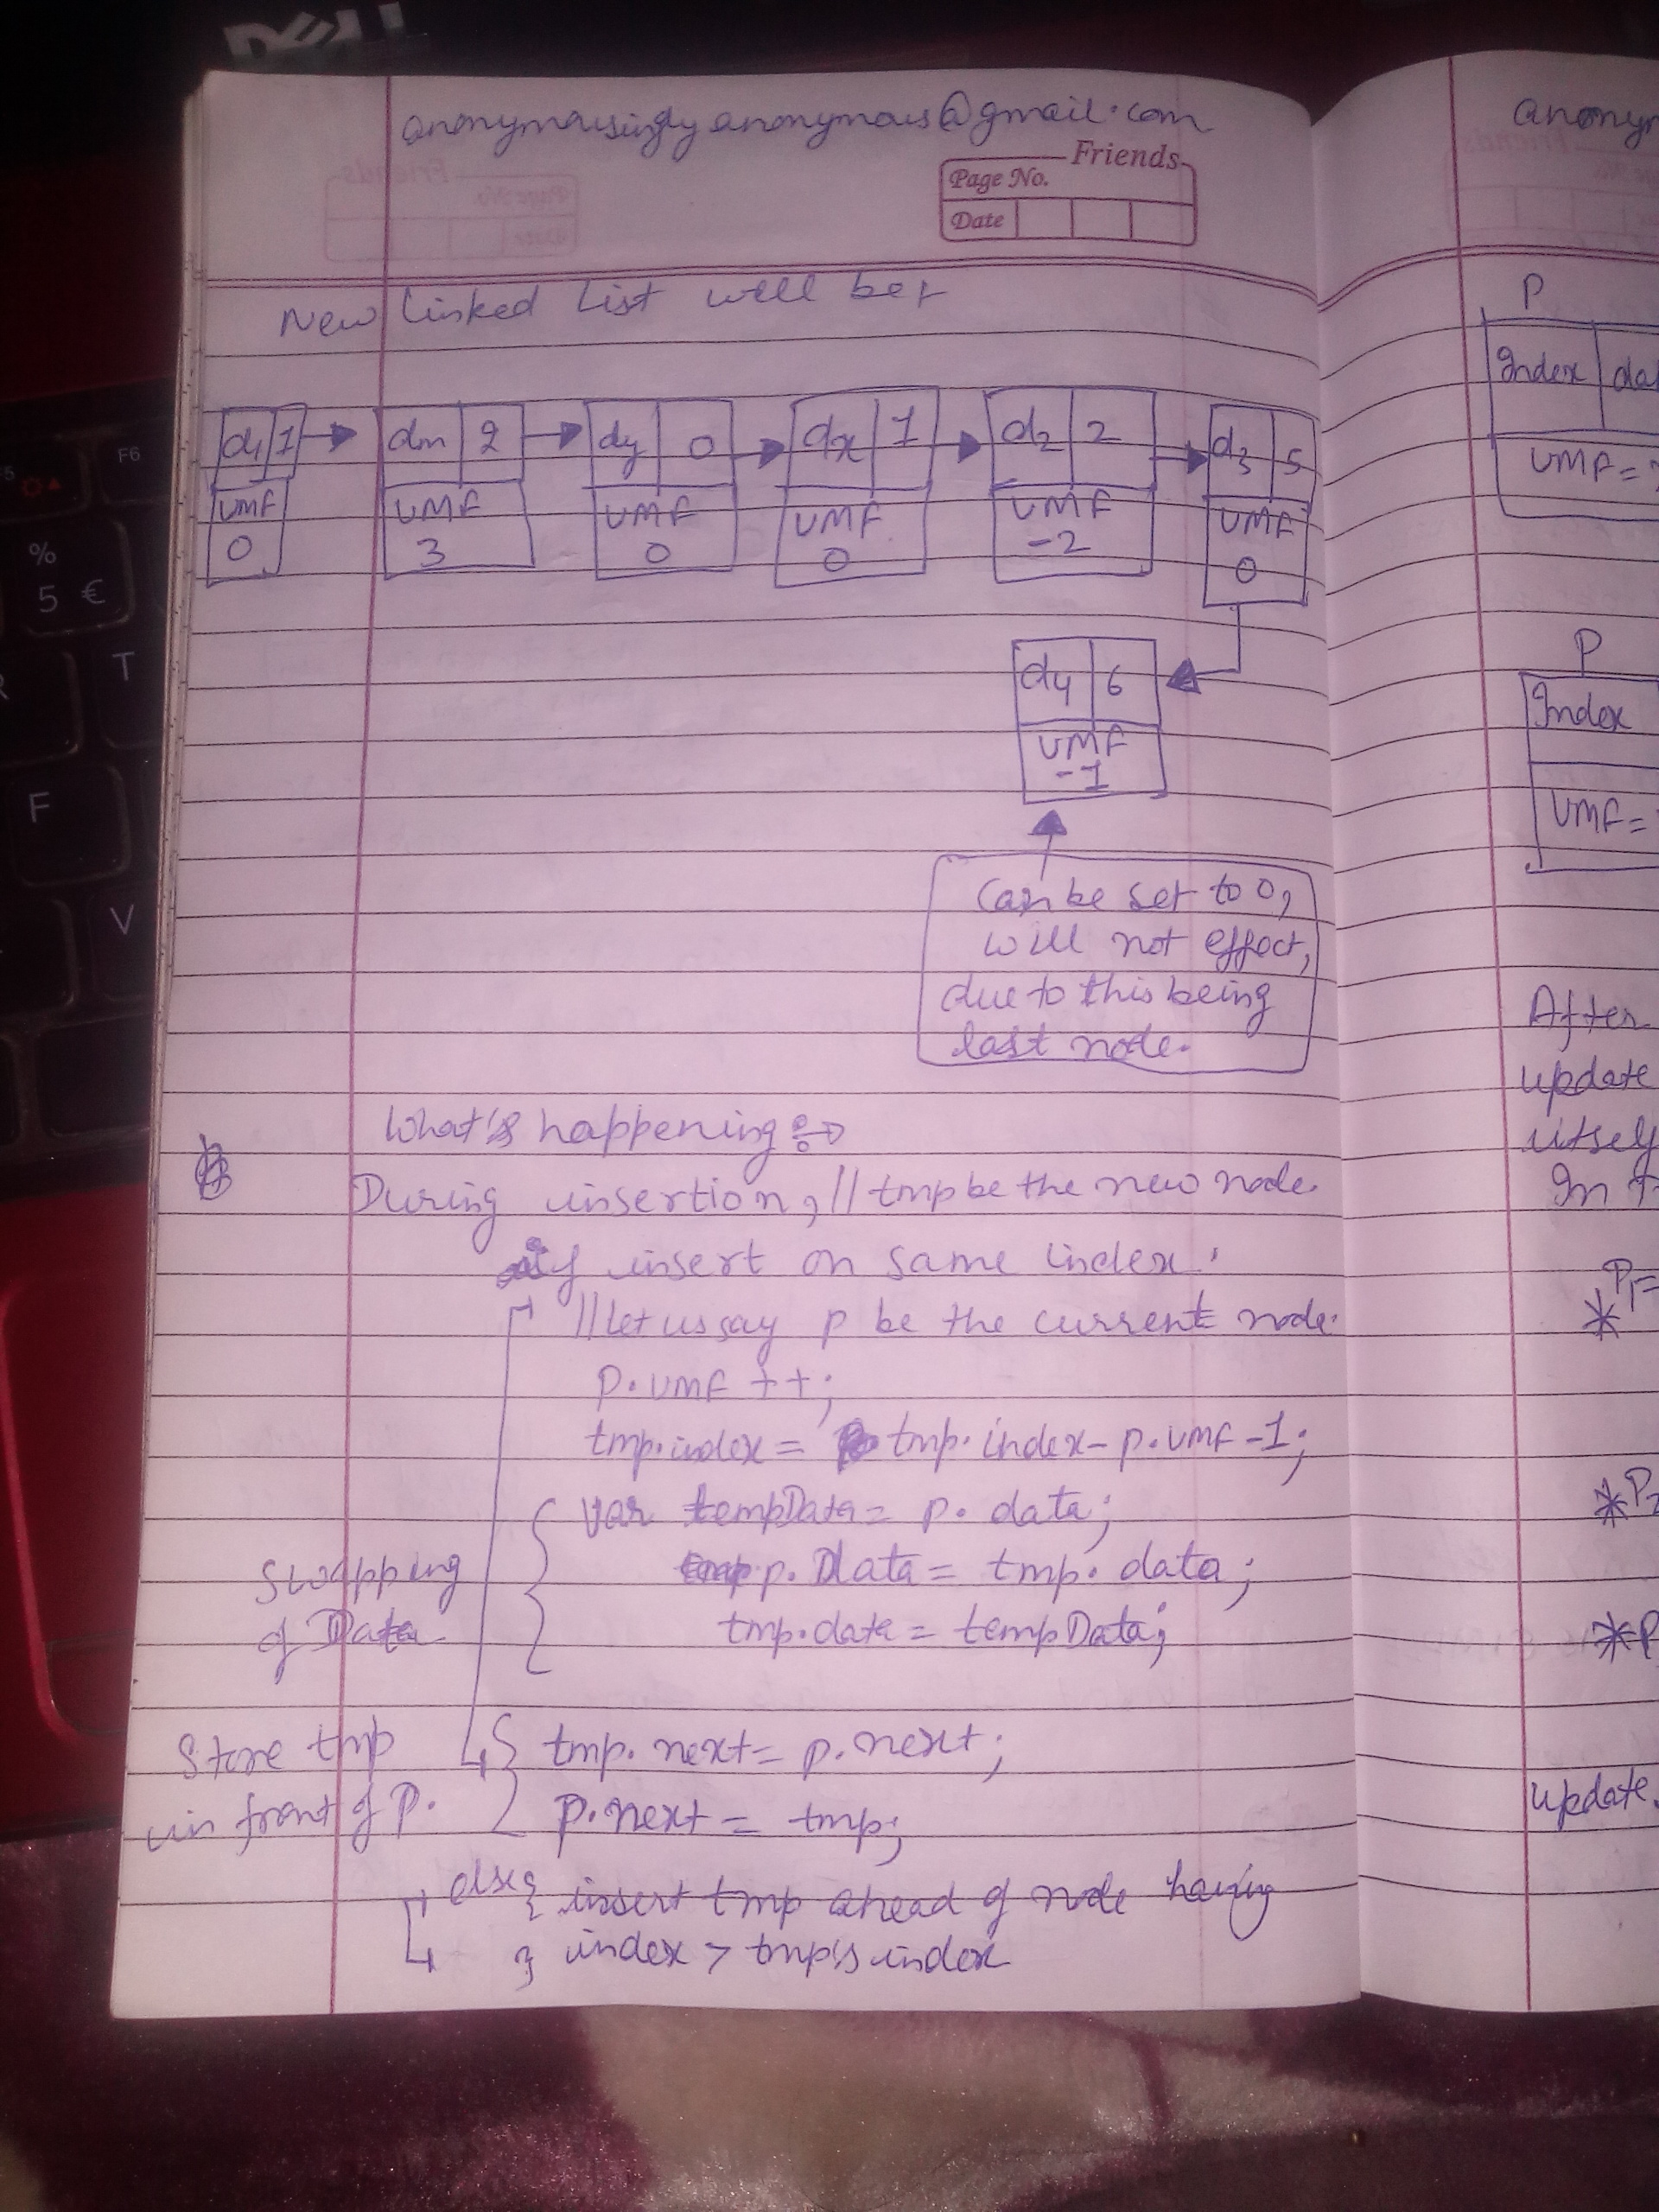 DELL
anonymousinglyanonymous@gmail.com
Friends
Page No.
Date
New Linked List will be:-
d1 1
VMF
0
dm 2
VMF
3
dy 0
VMF
0
dx 1
VMF
0
d2 2
VMF
-2
d3 5
VMF
0
d4 6
VMF
-1
Can be set to 0,
will not effect,
due to this being
last node.
What's happening :→
During insertion, // tmp be the new node.
if insert on same index:
// let us say p be the current node.
P.VMF ++;
tmp.index = tmp.index - p.VMF -1;
Var tempData = p.data;
p.Data = tmp.data;
tmp.data = tempData;
Swapping
of Data
Store tmp
in front of P.
tmp.next = p.next;
p.next = tmp;
else { insert tmp ahead of node having
} index > tmp's index
P
Index
VMF =
P
Index
VMF =
After
update
itself
In
*P1=
*P2
*P
update
F6
5
%
5 €
T
F
V